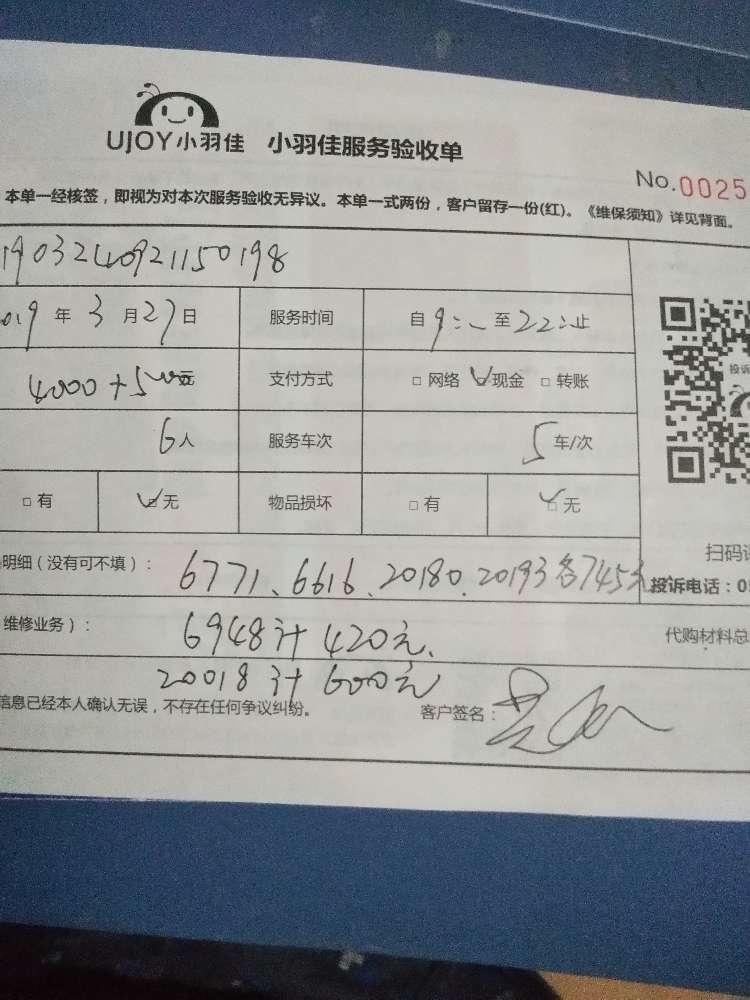 UJOY小羽佳 小羽佳服务验收单
No.0025
本单一经核签，即视为对本次服务验收无异议。本单一式两份，客户留存一份(红)。《维保须知》详见背面。
1903240921150198
019年3月27日 服务时间 自9:至22:止
4000+500元 支付方式 □网络 ☑现金 □转账
投诉
6人 服务车次 5车/次
□有 ☑无 物品损坏 □有 ☑无
扫码
明细（没有可不填）： 6771、6616、20180、20193各745元
投诉电话：0
维修业务）： 6948计420元、
代购材料总
20018计600元
信息已经本人确认无误，不存在任何争议纠纷。 客户签名：